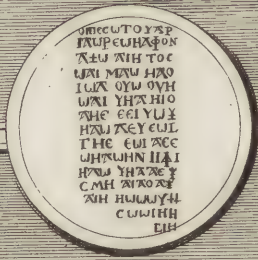 ΟΠΕCΩΤΟΥΑΡ
ΓΑΥΡΕΩΗΑΦΟΝ
ΑΞΩ ΑΙΗ ΤΟC
ΩΑΙ ΜΑΩ ΗΑΟ
ΙΩΑ ΟΥΩ ΟΥΗ
ΩΑΙ ΥΗΑΗΙΟ
ΑΗΕ ΕΕΙΥΩ
ΗΑΩ ΑΕΥΕΩΙ
ΓΗΕ ΕΩΙΑΕΕ
ΩΗΑΩΗΝ
ΗΑΩ ΥΗΑΑΕ
CΜΗ ΑΙΑΟΑΙ
ΑΙΗ ΗΩΩΥΗ
CΩΩΙΗΗ